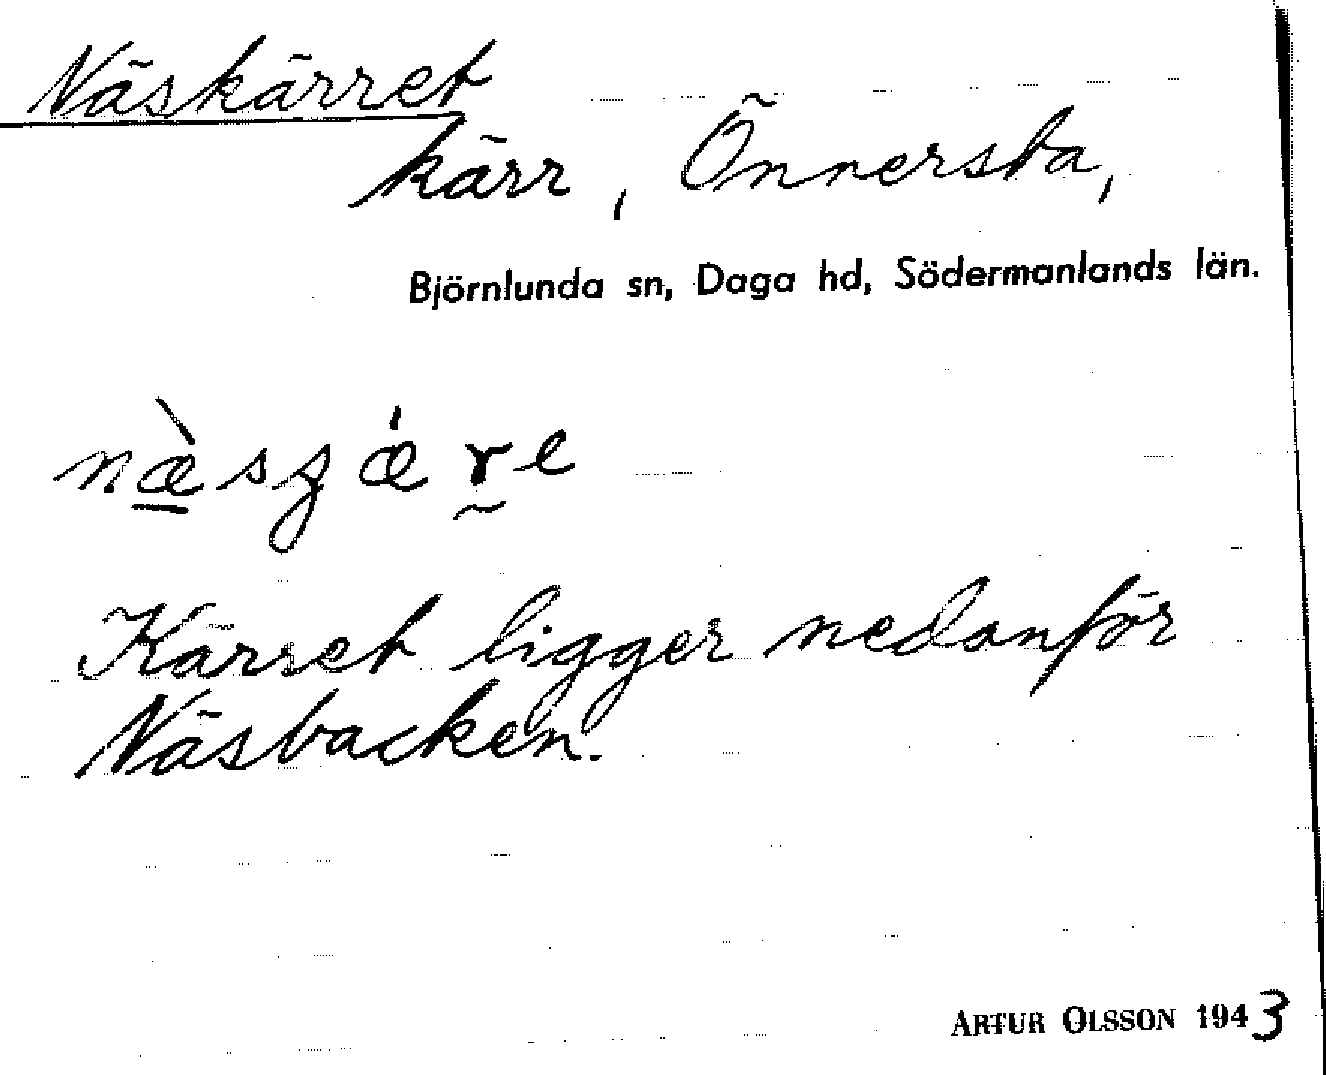 Näskärret
kärr, Önnersta,
Björnlunda sn, Daga hd, Södermanlands län.
næ̀sʒǽre
Kärret ligger nedanför
Näsbacken.
ARTUR OLSSON 1943